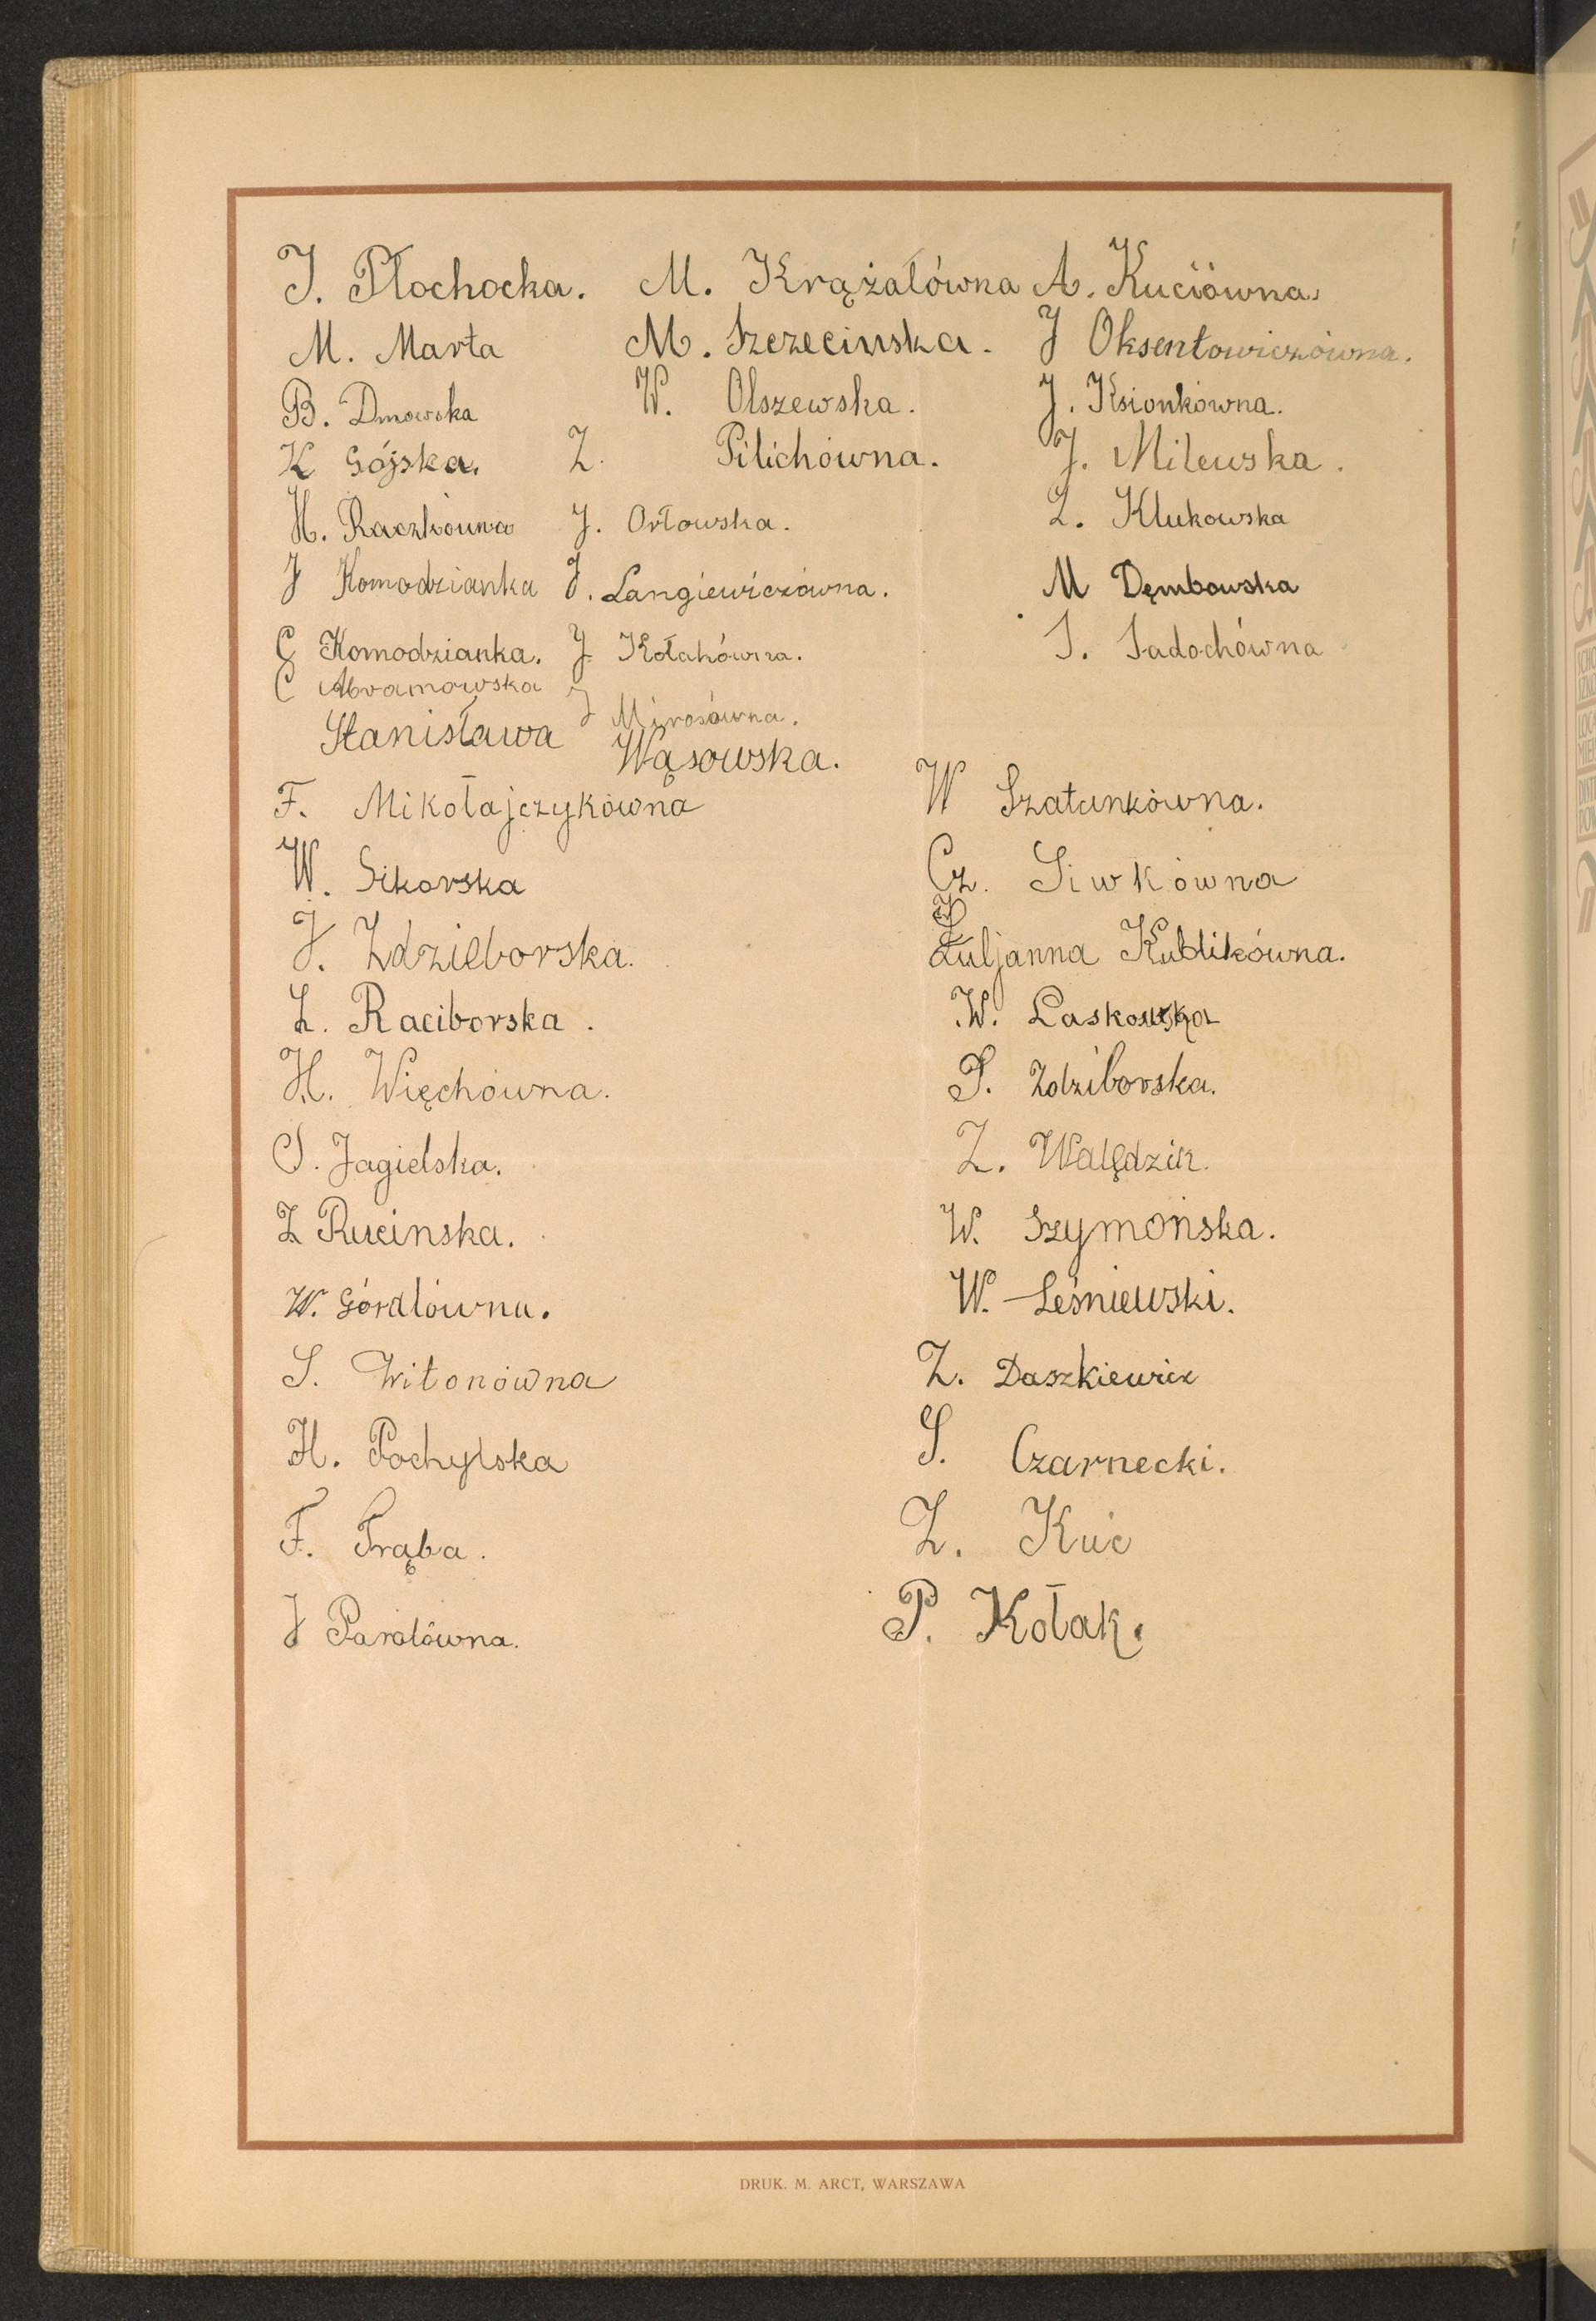 J. Płochocka. M. Krążałówna A. Kuciówna.
M. Marta M. Szczecinska. J Oksentowiczówna.
B. Dmowska W. Olszewska. J. Ksionkówna.
K Gójska. Z. Pilichówna. J. Milewska.
H. Raczkówna J. Orłowska. Z. Klukowska
J Komodzianka J. Langiewiczówna. M Dęmbowska
G Komodzianka. J Kołakówna. S. Sadochówna
C Abramowska J Mirosówna.
Stanisława Wąsowska.
F. Mikołajczykówna W Szatunkówna.
W. Sikorska Cz. Siwkówna
J. Zdzieborska. Juljanna Kublikówna.
Z. Raciborska. W. Laskowska
H. Więchówna. S. Zdziborska.
S. Jagielska. Z. Walędzik.
Z Rucinska. W. Szymońska.
W. Górdlówna. W. Leśniewski.
S. Witonówna Z. Daszkiewicz
H. Pochylska S. Czarnecki.
F. Trąba. Z. Kuć
J Parolówna. P. Kołak.
DRUK. M. ARCT, WARSZAWA